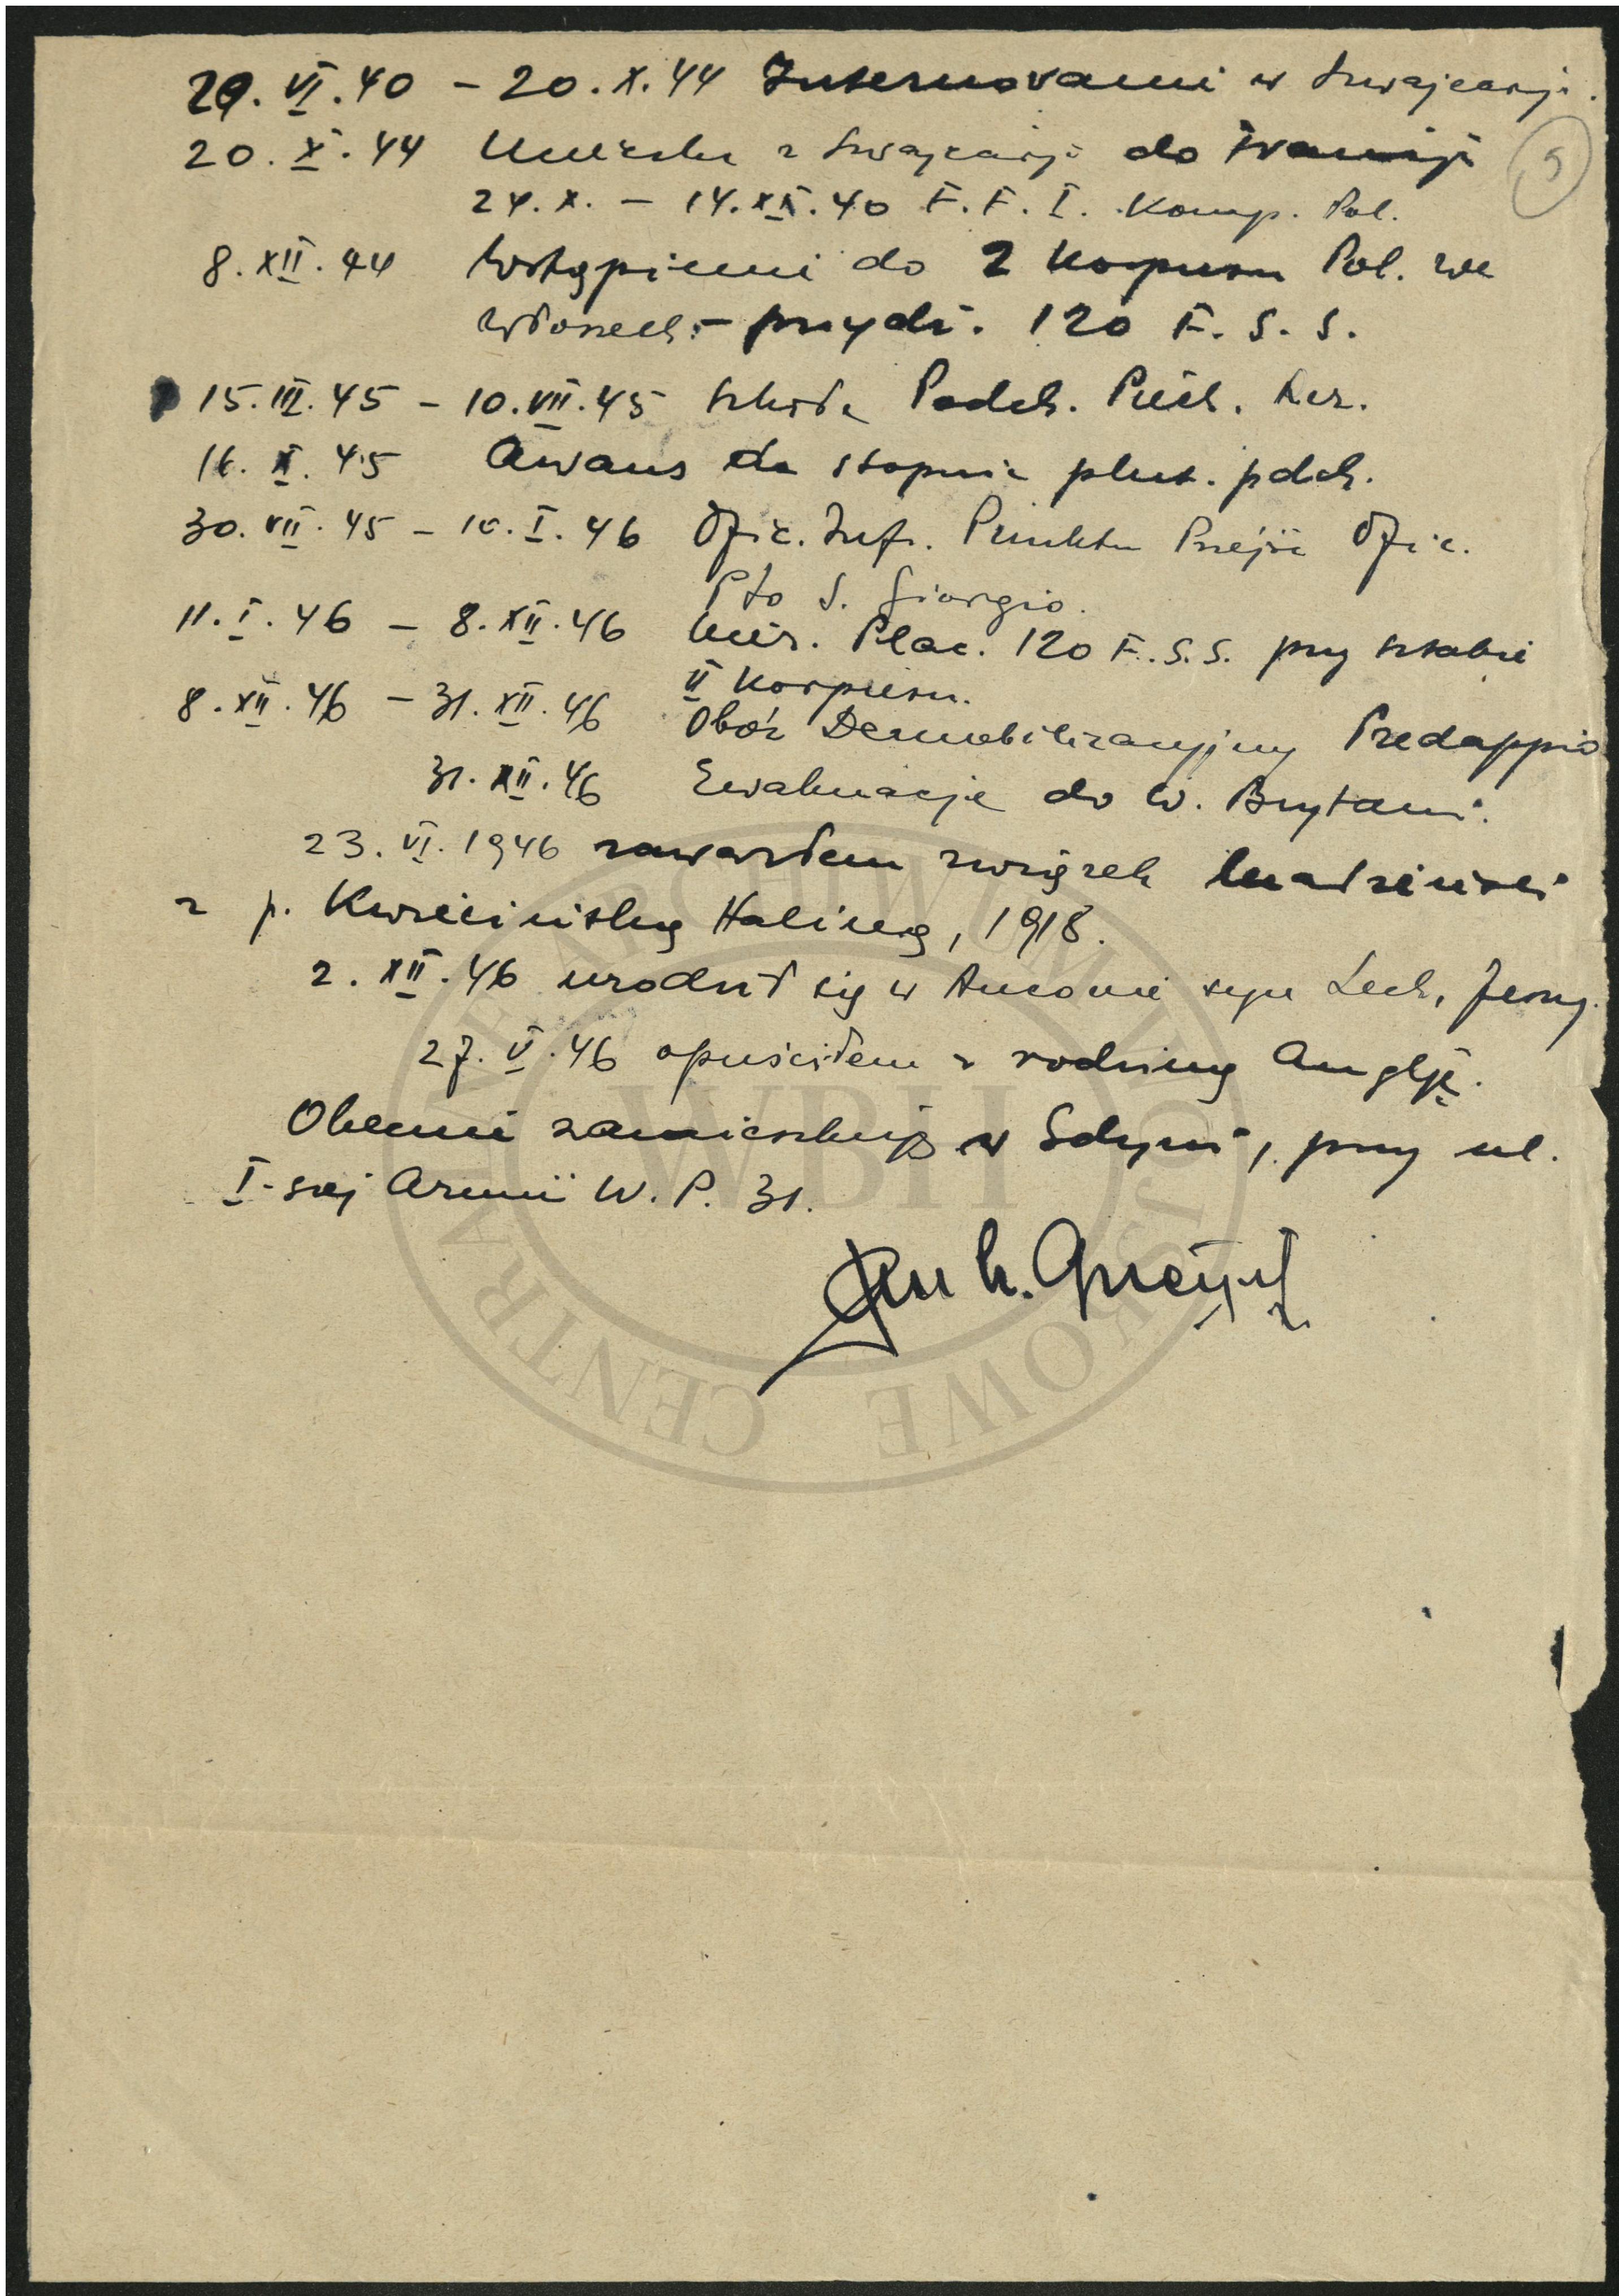 29. VI. 40 – 20. X. 44 Internowanie w Szwajcarji.
20. X. 44 Ucieczka z Szwajcarji do Francji
9
24. X. – 14. XI. 40 F. F. I. Komp. Pol.
8. XII. 44 Wstąpienie do 2 Korpusu Pol. we
Włoszech – przydz. 120 F. S. S.
15. III. 45 – 10. VII. 45 Szkoła Podch. Piech. Rez.
16. X. 45 Awans do stopnia plut. pdch.
30. VII. 45 – 10. I. 46 Ofic. Inf. Punktu Przejśc Ofic.
Pto S. Giorgio.
11. I. 46 – 8. XII. 46 Kier. Plac. 120 F. S. S. przy sztabie
II Korpusu.
8. XII. 46 – 31. XII. 46 Obóz Demobilizacyjny Predappio
31. XII. 46 Ewakuacja do W. Brytani.
23. VI. 1946 zawarłem związek małżeński
z p. Kwiecińską Haliną, 1918.
2. XII. 46 urodził się w Anconie syn Lech, Jerzy.
27. V. 46 opuściłem z rodziną Anglję.
Obecnie zamieszkuję w Gdyni, przy ul.
I-szej Armii W. P. 31.
CENTRALNE ARCHIWUM WOJSKOWE
WBH